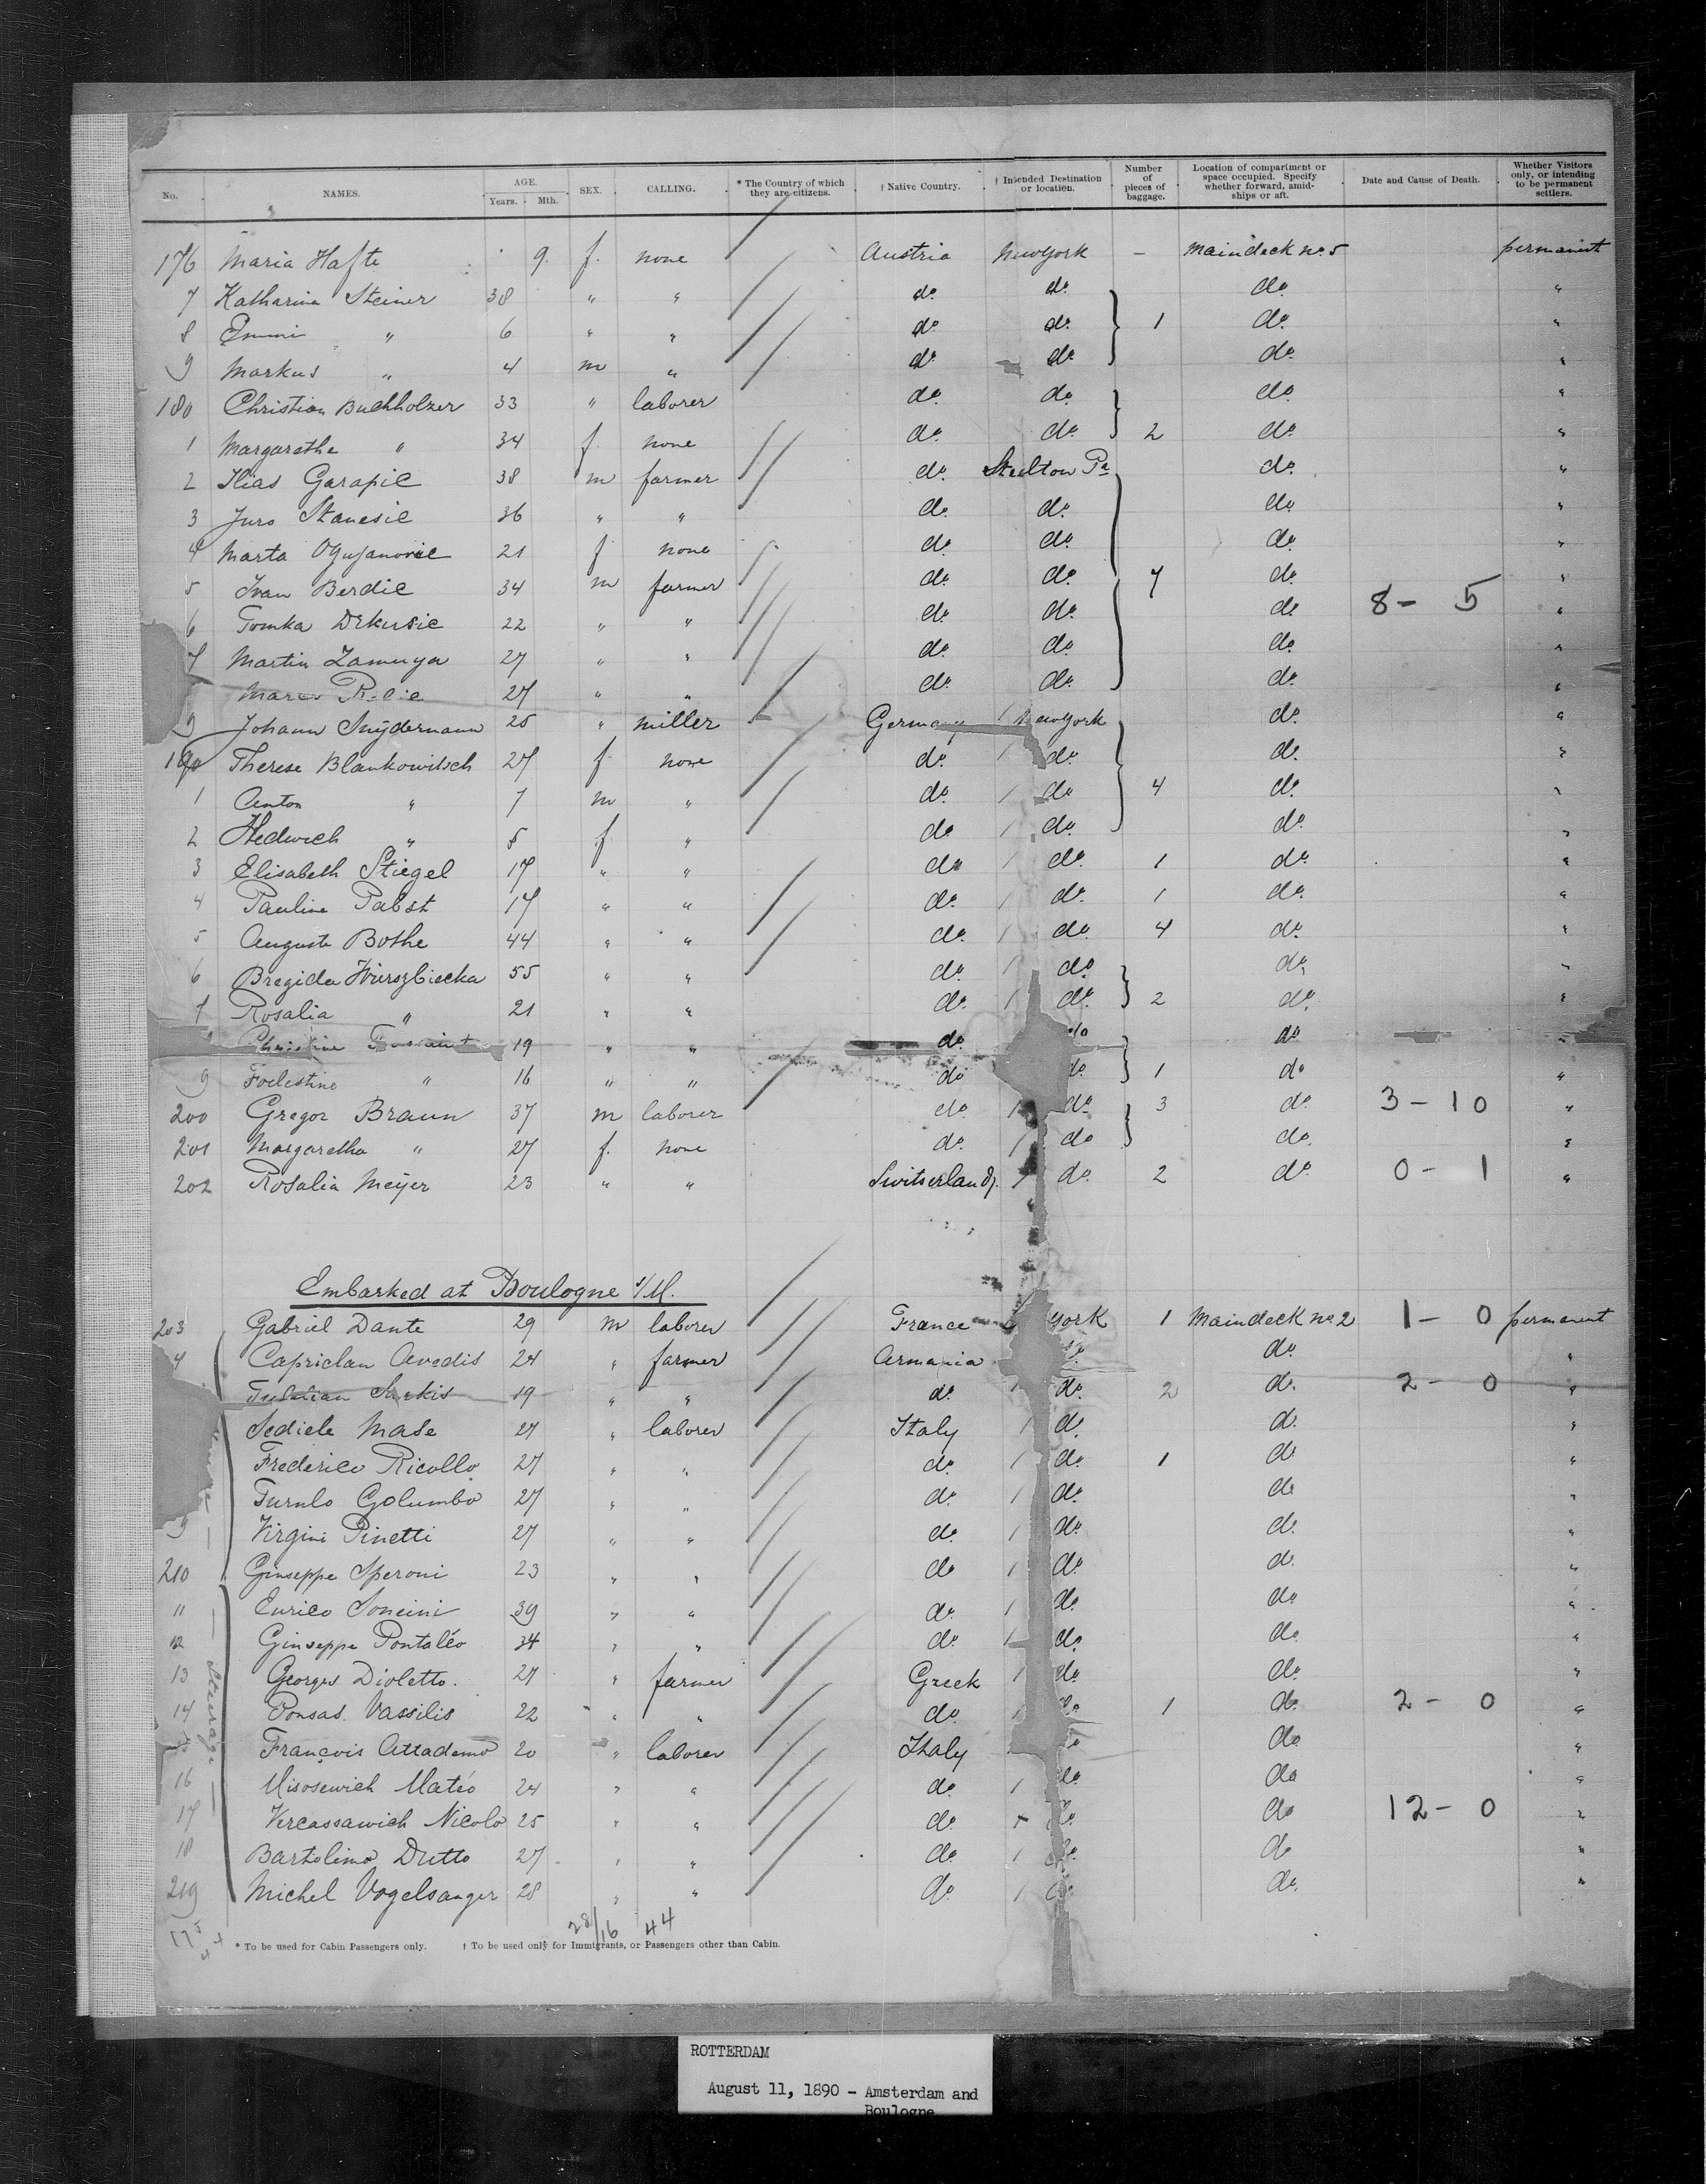 No. NAMES. AGE. Years. Mth. SEX. CALLING. * The Country of which they are citizens. † Native Country. † Intended Destination or location. Number of pieces of baggage. Location of compartment or space occupied. Specify whether forward, amidships or aft. Date and Cause of Death. Whether Visitors only, or intending to be permanent settlers.
176 Maria Hafte 9. f. none Austria New York — Maindeck no. 5 permanent
7 Katharina Steiner 38 " " do. do. do. "
8 Emmi " 6 " " do. do. 1 do. "
9 Markus " 4 m " do. do. do. "
180 Christian Buchholzer 33 " laborer do. do. do. "
1 Margarethe " 34 f. none do. do. 2 do. "
2 Ilias Garapic 38 m farmer do. Steelton Pa do. "
3 Juro Stanesic 36 " " do. do. do. "
4 Marta Ogujanovic 21 f none do. do. do. "
5 Ivan Berdic 34 m farmer do. do. 7 do. 8 - 5 "
6 Tomka Drkusic 22 " " do. do. do. "
7 Martin Zamuya 27 " " do. do. do. "
27 " " do. do. do. "
9 Johann Snijdermann 25 " miller Germany 1 New York do. "
190 Therese Blankowitsch 27 f none do. 1 do. do. "
1 Anton " 7 m " do. 1 do. 4 do. "
2 Hedwich " 5 f " do. 1 do. do. "
3 Elisabeth Stiegel 17 " " do. 1 do. 1 do. "
4 Pauline Pabst 17 " " do. 1 do. 1 do. "
5 Auguste Bothe 44 " " do. 1 do. 4 do. "
6 Bregida Wierszbiecka 55 " " do. 1 do. do. "
7 Rosalia " 21 " " do. 1 do. 2 do. "
Christine 19 " " do. do. do. "
9 Foelestine " 16 " " do. do. 1 do. "
200 Gregor Braun 37 m laborer do. 1 do. 3 do. 3 - 10 "
201 Margaretha " 27 f. none do. 1 do. do. "
202 Rosalia Meijer 23 " " Switserland. 1 do. 2 do. 0 - 1 "
Embarked at Boulogne s/M.
203 Gabriel Dante 29 m laborer France York 1 Maindeck no. 2 1 - 0 permanent
4 Capriclan Avedis 24 " farmer Armania do. do. "
Sarkis 19 " " do. 1 do. 2 do. 2 - 0 "
Sediele Mase 27 " laborer Italy 1 do. do. "
Frederico Ricollo 27 " " do. 1 do. 1 do. "
Turnlo Golumbo 27 " " do. 1 do. do. "
9 Virgini Pinetti 27 " " do. 1 do. do. "
210 Ginseppe Speroni 23 " " do. 1 do. do. "
11 Enrico Soncini 39 " " do. 1 do. do. "
12 Ginseppe Pontaléo 34 " " do. 1 do. do. "
13 Georges Dioletto. 27 " farmer Greek 1 do. do. "
14 Ponsas Vassilis 22 " " do. 1 do. 1 do. 2 - 0 "
15 François Attademo 20 " laborer Italy do. do. "
16 Misosewich Matéo 24 " " do. 1 do. do. "
17 Vercassawich Nicolo 25 " " do. 1 do. do. 12 - 0 "
18 Bartolimo Dutto 27 " " do. 1 do. do. "
219 Michel Vogelsanger 28 " " do. 1 do. do. "
Steerage
28/16 44
* To be used for Cabin Passengers only. † To be used only for Immigrants, or Passengers other than Cabin.
ROTTERDAM
August 11, 1890 - Amsterdam and
Boulogne